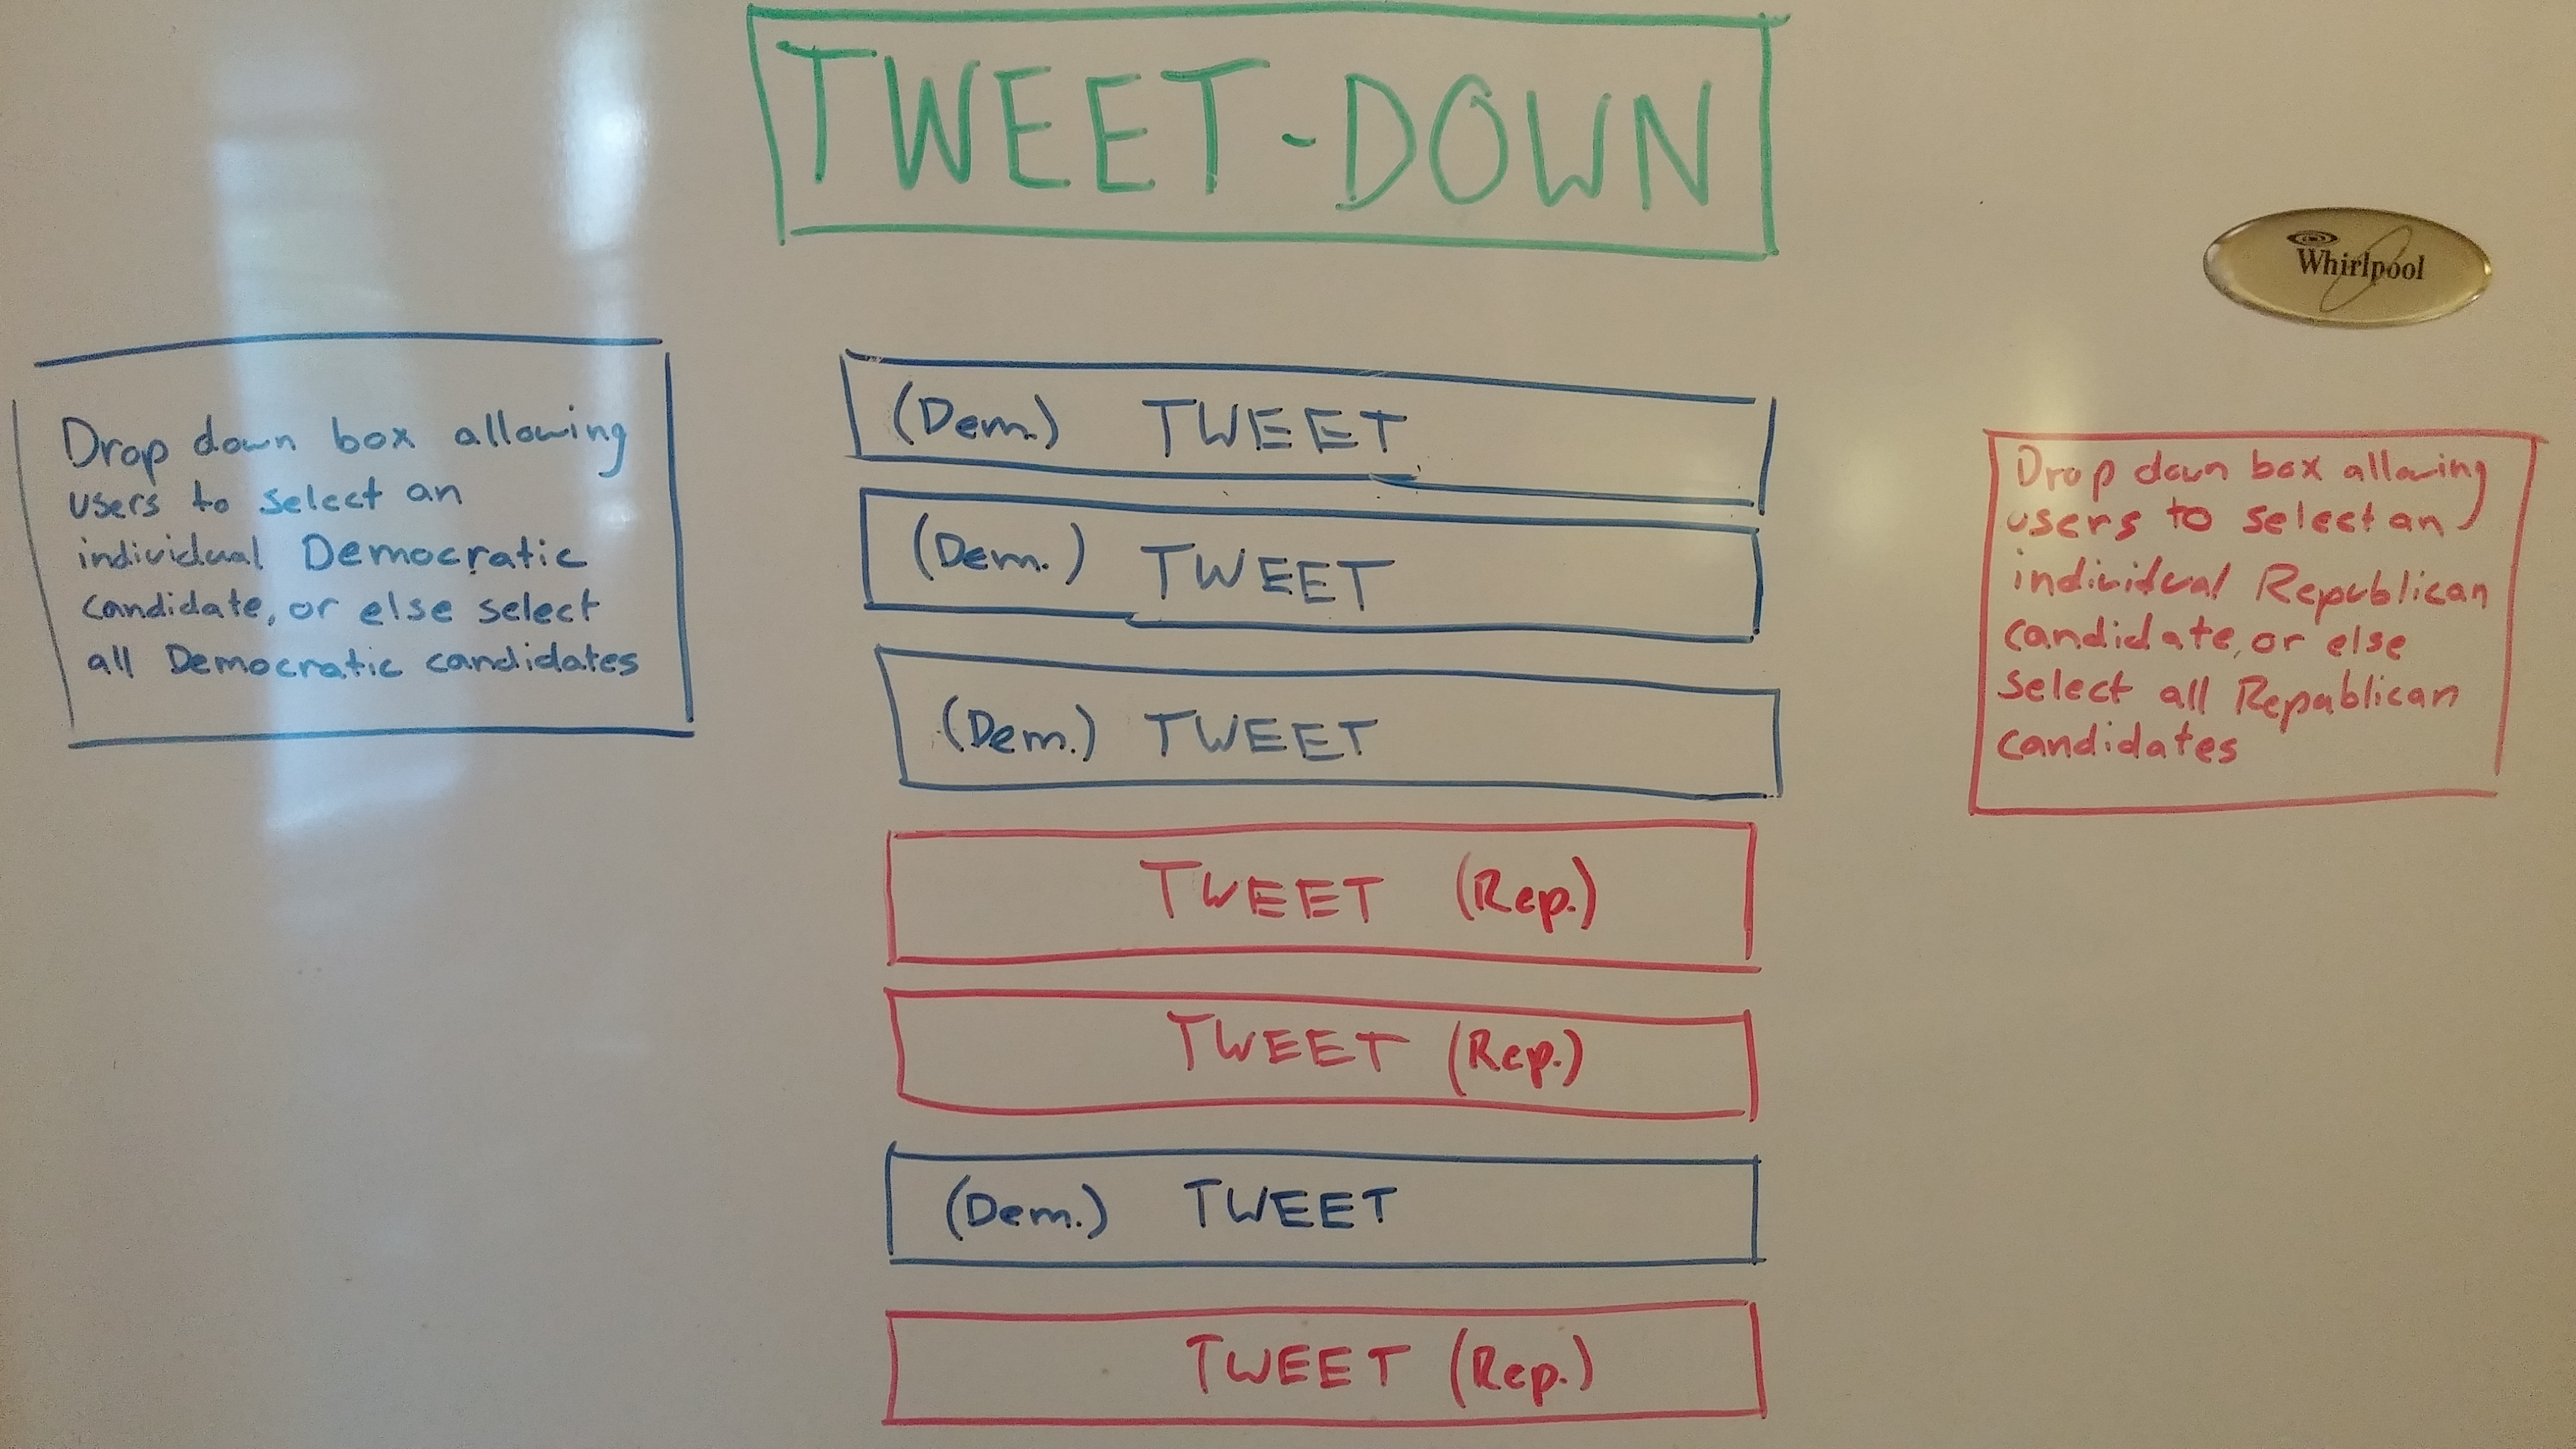 TWEET-DOWN
Whirlpool
Drop down box allowing
users to select an
individual Democratic
candidate, or else select
all Democratic candidates
(Dem.) TWEET
(Dem.) TWEET
(Dem.) TWEET
TWEET (Rep.)
TWEET (Rep.)
(Dem.) TWEET
TWEET (Rep.)
Drop down box allowing
users to select an
individual Republican
candidate, or else
select all Republican
candidates